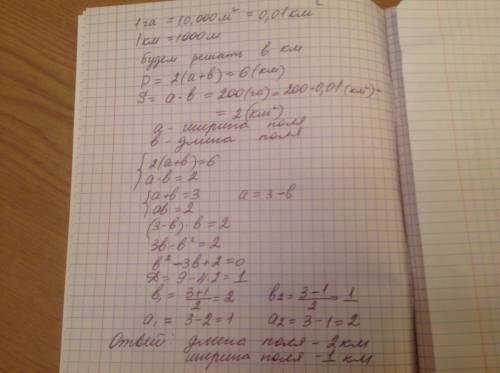 1га = 10,000м² = 0,01км²
1км = 1000м
будем решать в км
P = 2(a+b) = 6(км)
S = a·b = 200(га) = 200·0,01(км²) =
= 2(км²)
a - ширина поля
в - длина поля
{2(a+b)=6
a·b = 2
{a+b = 3 a = 3-b
ab = 2
(3-b)·b = 2
3b-b² = 2
b²-3b+2=0
D = 9-4·2 = 1
b₁ = (3+1)/2 = 2 b₂ = (3-1)/2 = 1
a₁ = 3-2=1 a₂ = 3-1=2
Ответ: длина поля - 2 км
ширина поля - 1 км